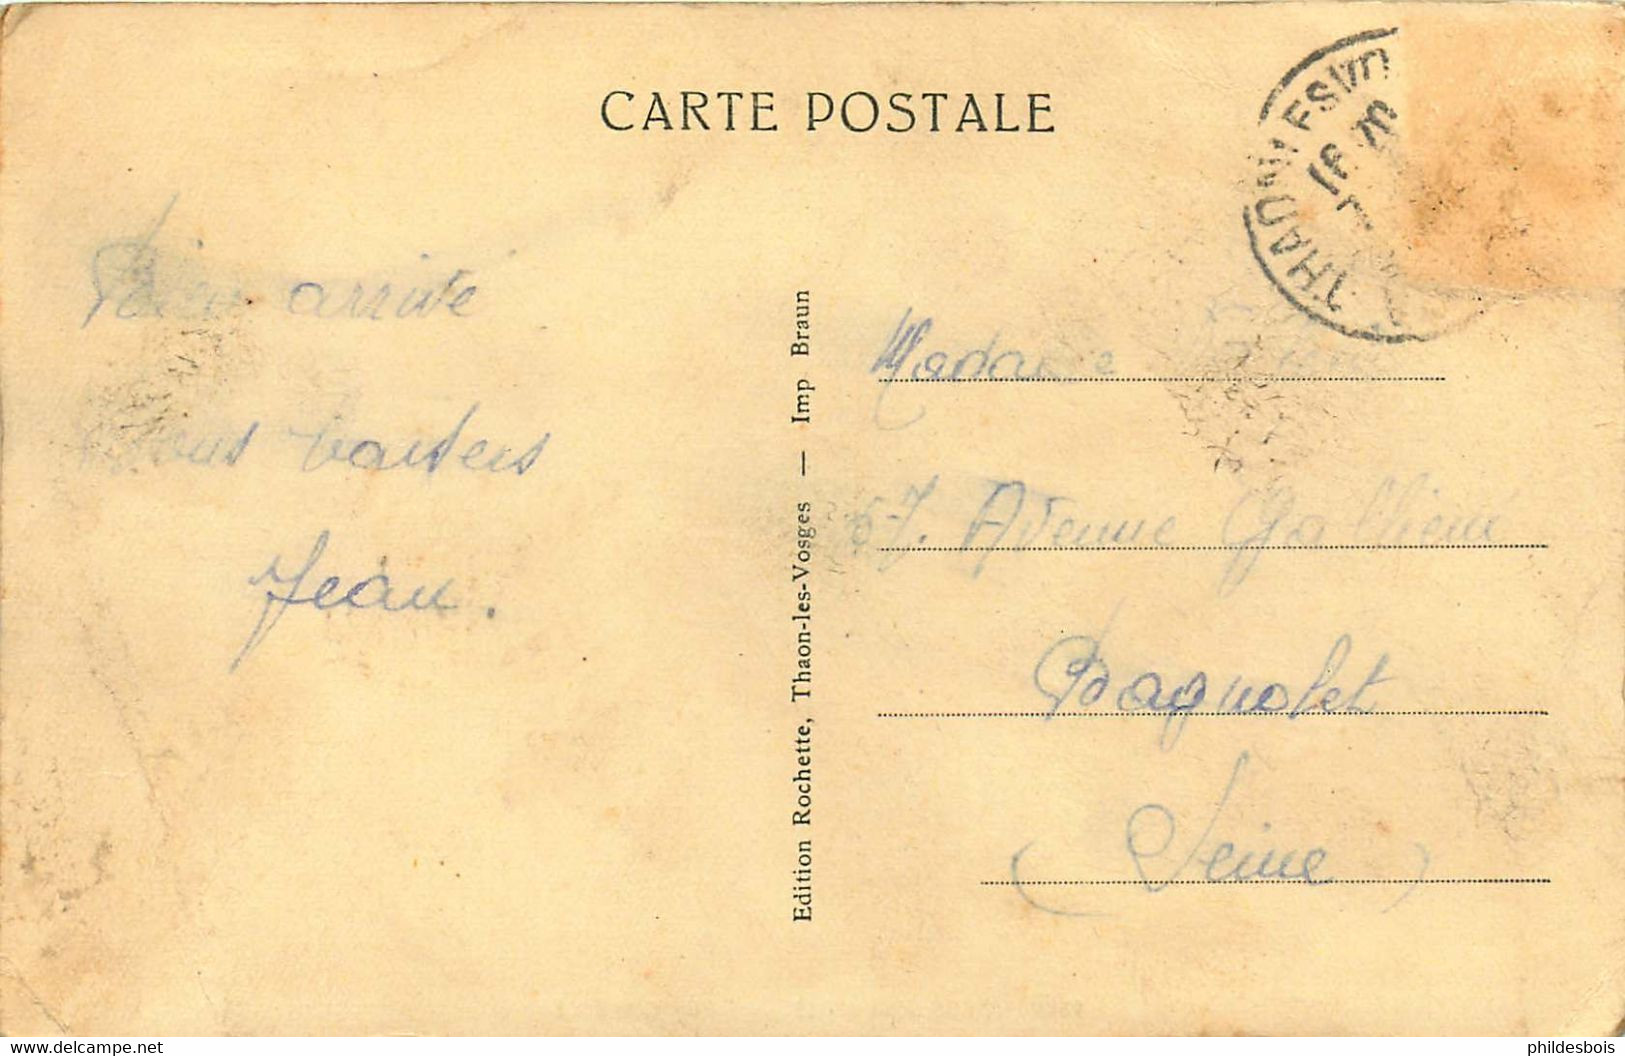 CARTE POSTALE
THAON LES VO
16 20
Bien arrivé
bons baisers
Jean.
Edition Rochette, Thaon-les-Vosges — Imp Braun
Madame
67. Avenue Gallieni
Bagnolet
(Seine)
www.delcampe.net
phildesbois